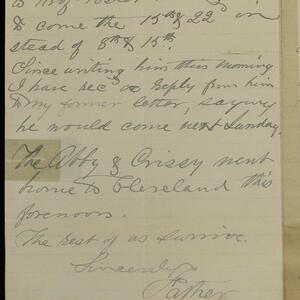 to come the 15th & 22 in
stead of 8th & 15th.
Since writing him this morning
I have rec a reply from him
to my former letter, saying
he would come next Sunday.
The Abby & Crissy went
home to Cleveland this
forenoon.
The rest of us survive.
Sincerely
Father